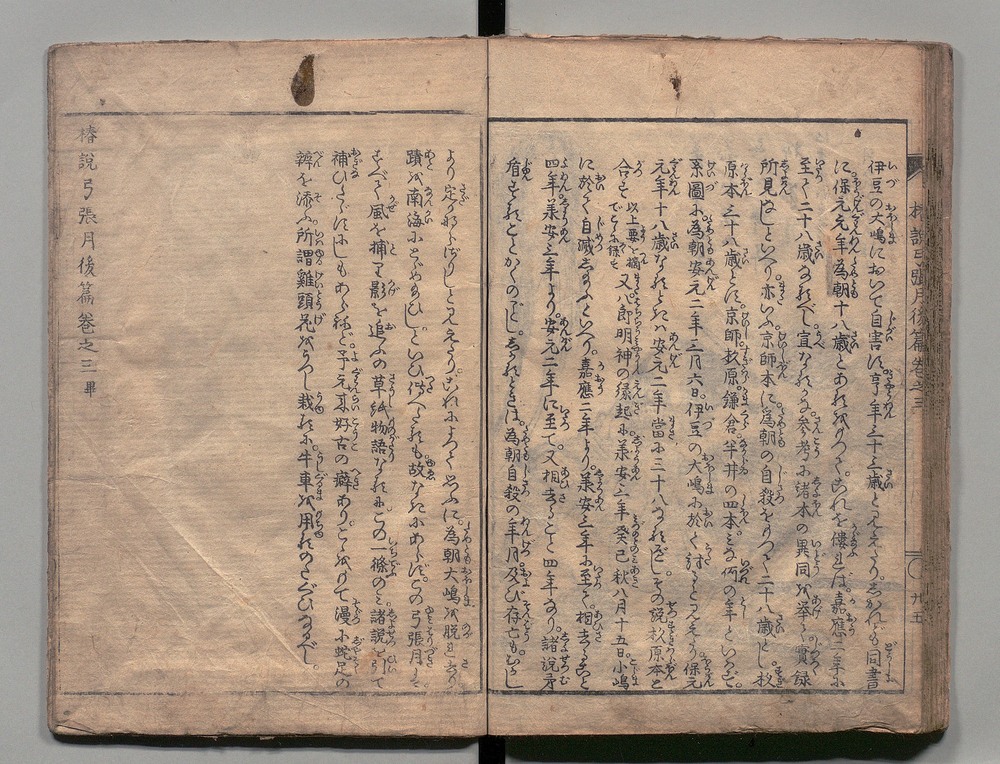 伊豆の大嶋において自害は。亨年三十三歳と見えたり。しかれども同書
に保元々年為朝十八歳とあれば。これを僂れば。嘉應二年に
至て二十八歳なるべし。宜なるかな参考に諸本の異同を挙て實録
所見なしといへり。亦いふ京師本に為朝の自殺をもつて二十八歳とし。杦
原本三十八歳とし。京師杦原。鎌倉半井の四本。その何の年といはず。
系圖に。為朝安元二年三月六日。伊豆の大嶋に於て討るとみえたり。保元
元年十八歳なるときは安元二年當に三十八なるべし。その説杦原本と
合す 以上要を摘 又八郎明神の縁起に。兼安三年癸巳秋八月十五日。小嶋
に於て自滅し給ふといへり。嘉應二年より。兼安三年に至て。相去こと
四年。兼安三年より。安元二年に至て。又相去こと四年なり。諸説矛
盾すること かくのごとし。しかるときは。為朝自殺の年月。及び存亡も。むかし
より定かならざりしとみえたり。これによつて思ふに。為朝大嶋を脱れ去り。
蹟を南海にとゞめ給ひし。といひ傳へたるも故なきにあらず。この弓張月は。
すべて風を捕り影を追ふの草紙物語なるに。この一條のみ諸説を引て
補ひたゞすにしもあらねど。予元来好古の癖あり。こゝをもて漫に蛇足の
辨を添ふ。所謂雞頭花をうゑ栽るに。牛車を用るのたぐひなるべし。
椿説弓張月後篇巻之三 畢
椿説弓張月後篇巻之三
〇 廿五